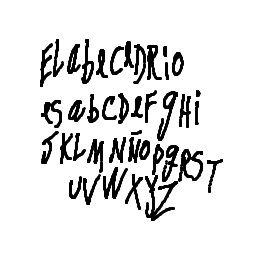 El abeCeDRio
es abCDeFgHi
JKLMNÑopqRST
UVWXYZ